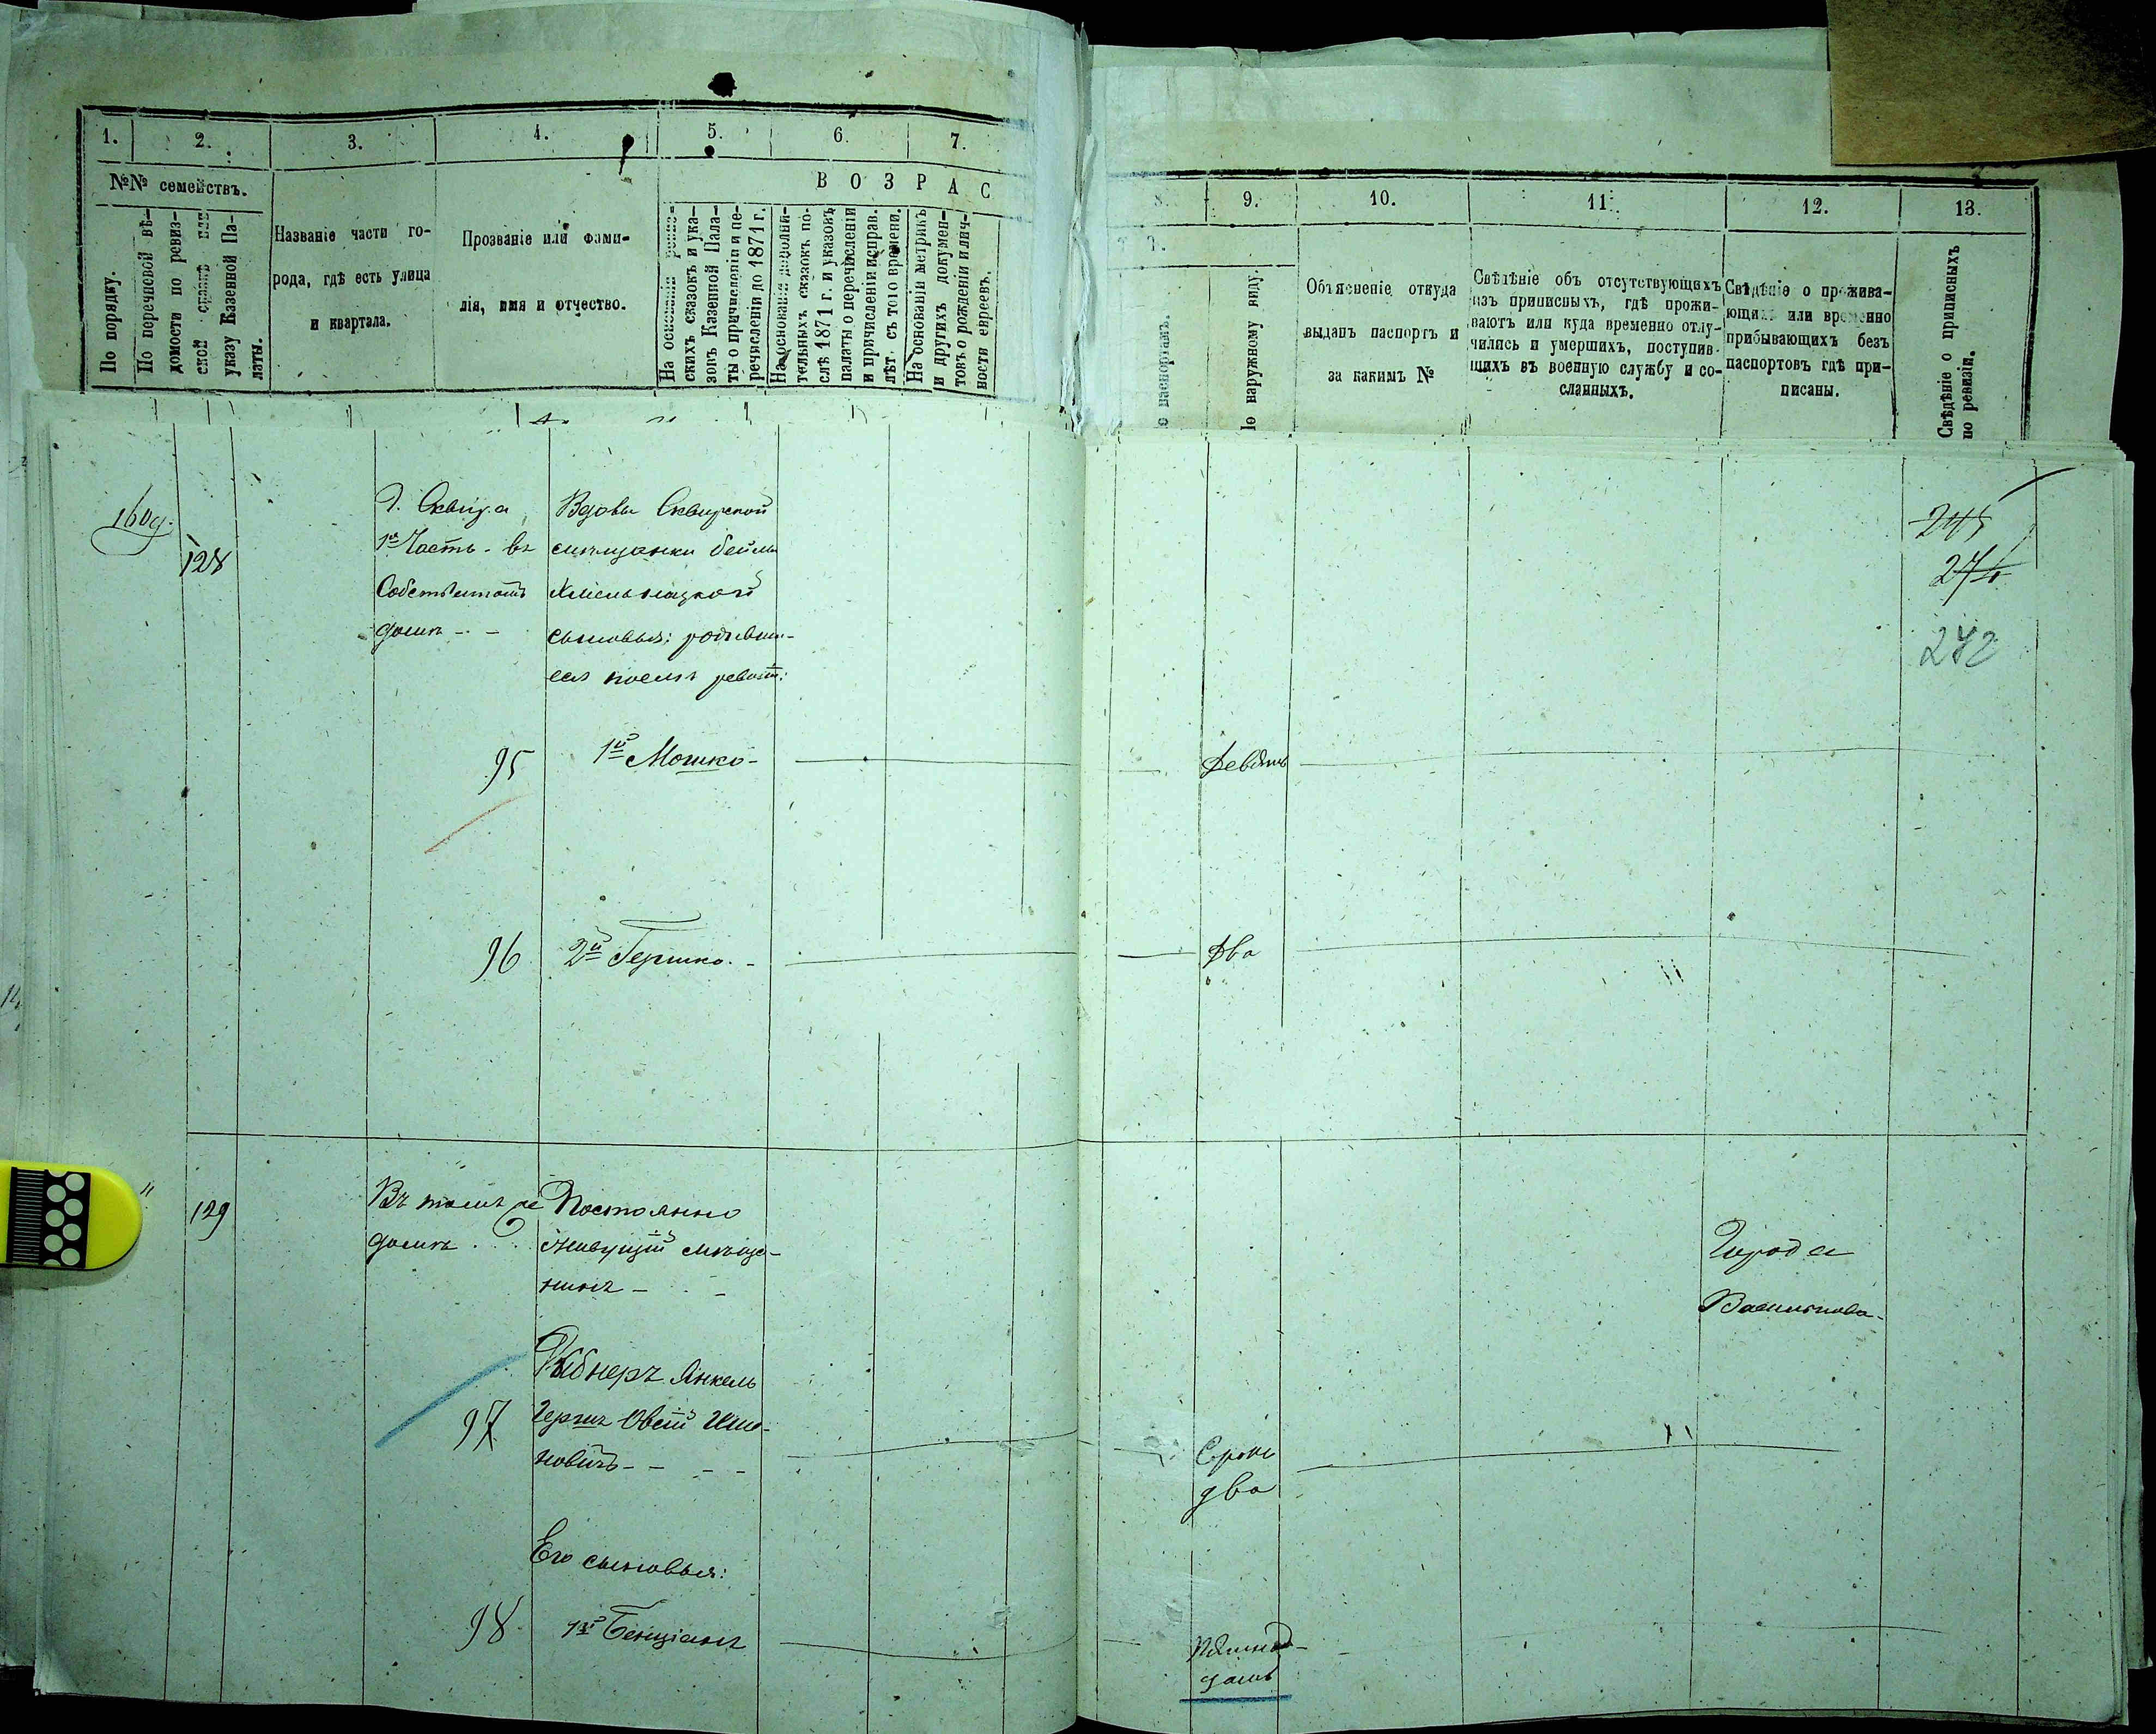 1.
2.
3.
4.
5.
6.
7.
№№ семействъ.
В О З Р А С
По порядку.
По перечневой вѣ-
домости по ревиз-
ской сказкѣ или
указу Казенной Па-
латы.
Названіе части го-
рода, гдѣ есть улица
и квартала.
Прозваніе или фами-
лія, имя и отчество.
На основаніи ревиз-
скихъ сказокъ и ука-
зовъ Казенной Пала-
ты о причисленіи и пе-
речисленіи до 1871 г.
На основаніи дополни-
тельныхъ сказокъ по-
слѣ 1871 г. и указовъ
палаты о перечисленіи
и причисленіи исправ.
лѣт. съ того времени.
На основаніи метрикъ
и другихъ докумен-
товъ о рожденіи и лич-
ности евреевъ.
8.
9.
10.
11.
12.
13.
Т Ъ.
по паспортамъ.
По наружному виду.
Объясненіе откуда
выданъ паспортъ и
за какимъ №
Свѣдѣніе объ отсутствующихъ
изъ приписныхъ, гдѣ прожи-
ваютъ или куда временно отлу-
чились и умершихъ, поступив-
шихъ въ военную службу и со-
сланныхъ.
Свѣдѣніе о прожива-
ющихъ или временно
прибывающихъ безъ
паспортовъ гдѣ при-
писаны.
Свѣдѣніе о приписныхъ
по ревизіи.
128
Г. Сквира
1я Часть. въ
Собственномъ
домѣ - -
Вдовы Сквирской
мѣщанки Бейлы
Хмельницкой
сыновья: родивші-
еся послѣ ревизіи:
245
274
272
95
1й Мошко -
Девять
96
2й Гершко. -
Два
129
Въ томъ же
домѣ
Постоянно
живущій мѣща-
нинъ -
Города
Василькова.
Янкель
97
Гершъ Овсій
новичъ - -
Сорокъ
два
Его сыновья:
98
1й Бенціанъ
Пятнад-
цать